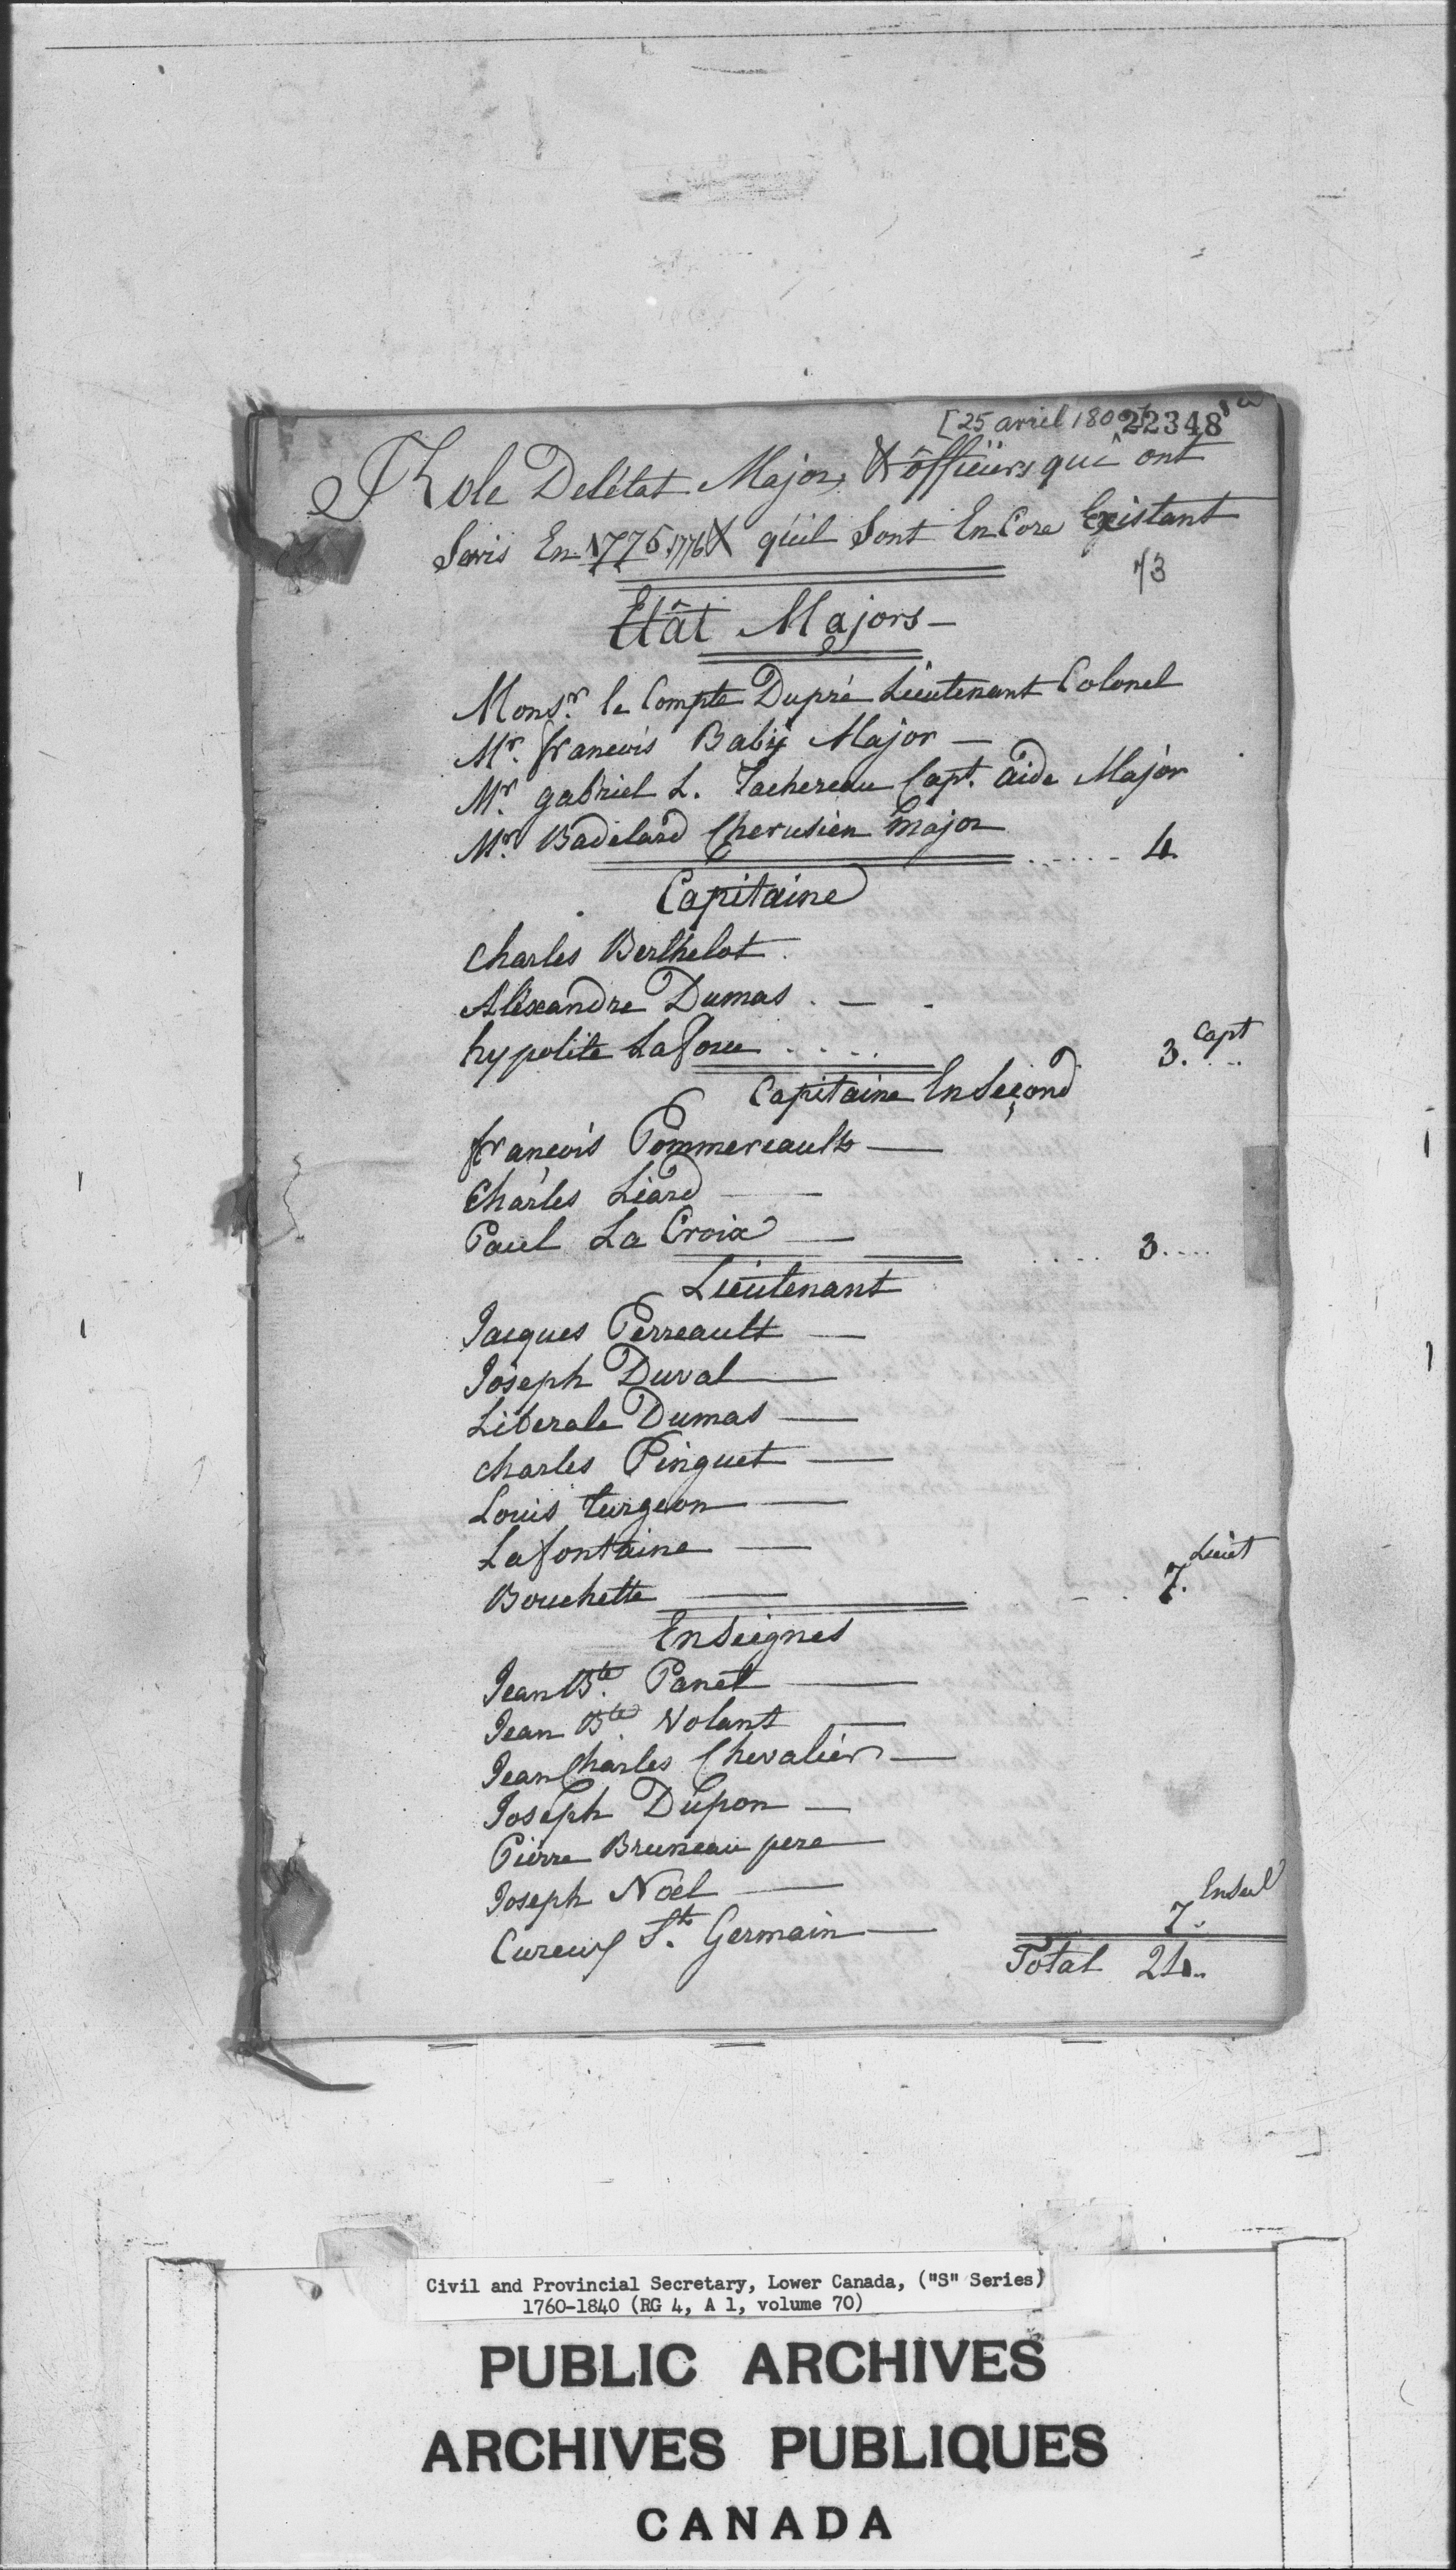 [25 avril 180
22348
Role Deletat Major, & officiers qui ont
Servis En 1775, 1776 & qu'il Sont EnCore Existant
73
Etât Majors
Monsr. le Compte Dupré Lieutenant Colonel
Mr. francois Baby Major
Mr. gabriel L. Tachereau Capt. aide Major
Mr. Badelard Cherusien major ...... 4
Capitaine
Charles Berthelot.
Aléxandre Dumas . — -
hypolite Laforce ..... 3. Capt
Capitaine En Second
francois Pommereault —
Charles Liard —
Paul La Croix — .... 3....
Lieutenant
Jacques Perreault —
Joseph Duval —
Liberale Dumas —
Charles Pinguet —
Louis turgeon —
Lafontaine —
Bouchette — - . 7. Lieut
Enseignes
Jean Bte. Panet —
Jean Bte. Volant —
Jean Charles Chevalier —
Joseph Dupon —
Pierre Bruneau pere —
Joseph Noël —
Cureux St. Germain — 7.
Total 24
Civil and Provincial Secretary, Lower Canada, ("S" Series)
1760-1840 (RG 4, A 1, volume 70)
PUBLIC ARCHIVES
ARCHIVES PUBLIQUES
CANADA